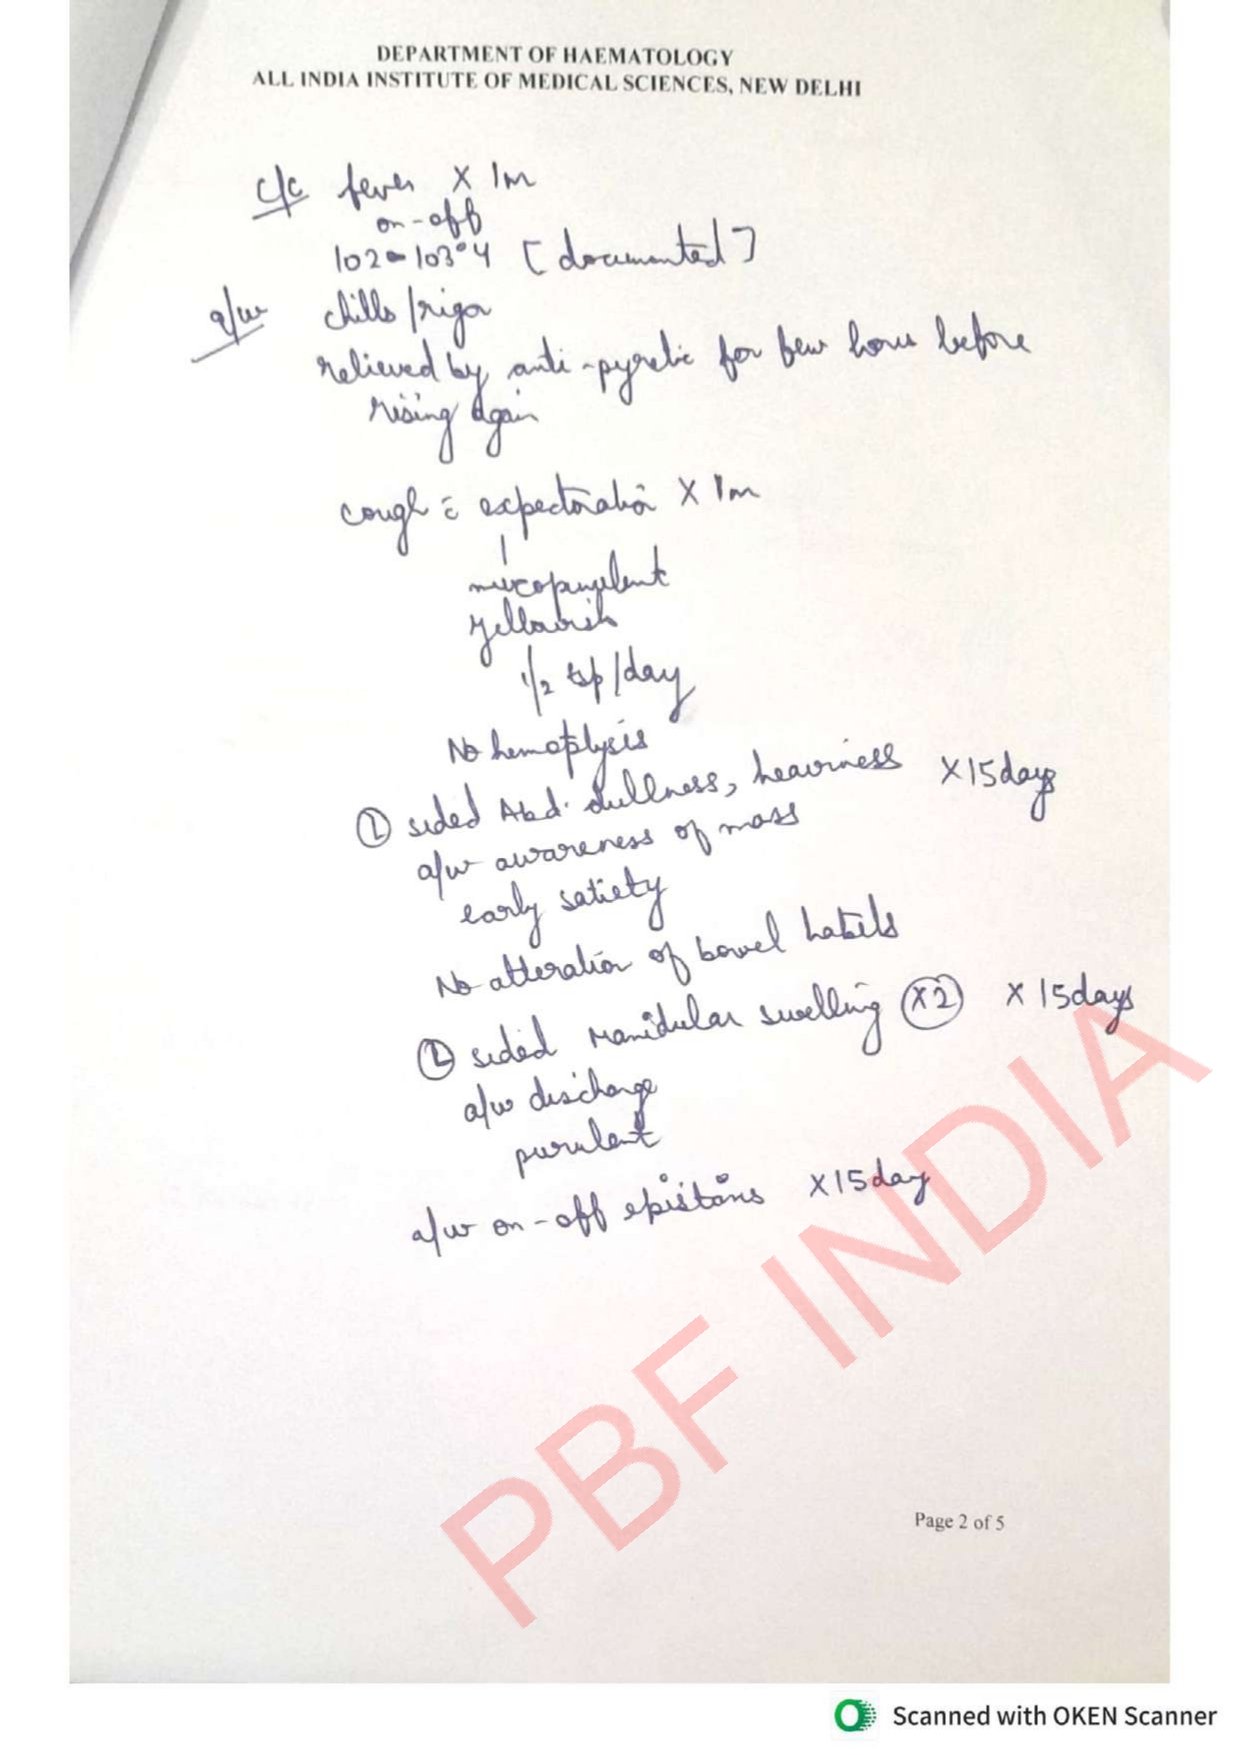 DEPARTMENT OF HAEMATOLOGY
ALL INDIA INSTITUTE OF MEDICAL SCIENCES, NEW DELHI
c/c fever X 1m
on-off
102-103°4 [documented]
a/w chills/rigor
relieved by anti-pyretic for few hours before
rising again
cough c̄ expectoration X 1m
mucopurulent
yellowish
1/2 tsp/day
No hemoptysis
Ⓛ sided Abd. dullness, heaviness X 15 days
a/w awareness of mass
early satiety
No alteration of bowel habits
Ⓛ sided Mandibular swelling (X2) X 15 days
a/w discharge
purulent
a/w on-off epistaxis X 15 day
PBF INDIA
Page 2 of 5
Scanned with OKEN Scanner